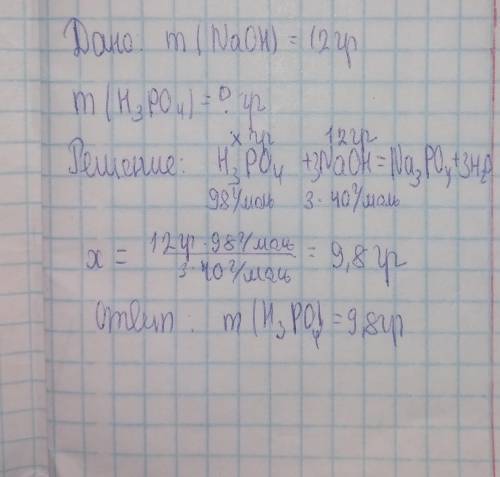 Дано: m (NaOH) = 12 гр
m (H₃PO₄) = ? гр
x гр 12 гр
Решение: H₃PO₄ + 3NaOH = Na₃PO₄ + 3H₂O
98 г/моль 3 · 40 г/моль
x = 12 гр · 98 г/моль / 3 · 40 г/моль = 9,8 гр
Ответ: m (H₃PO₄) = 9,8 гр